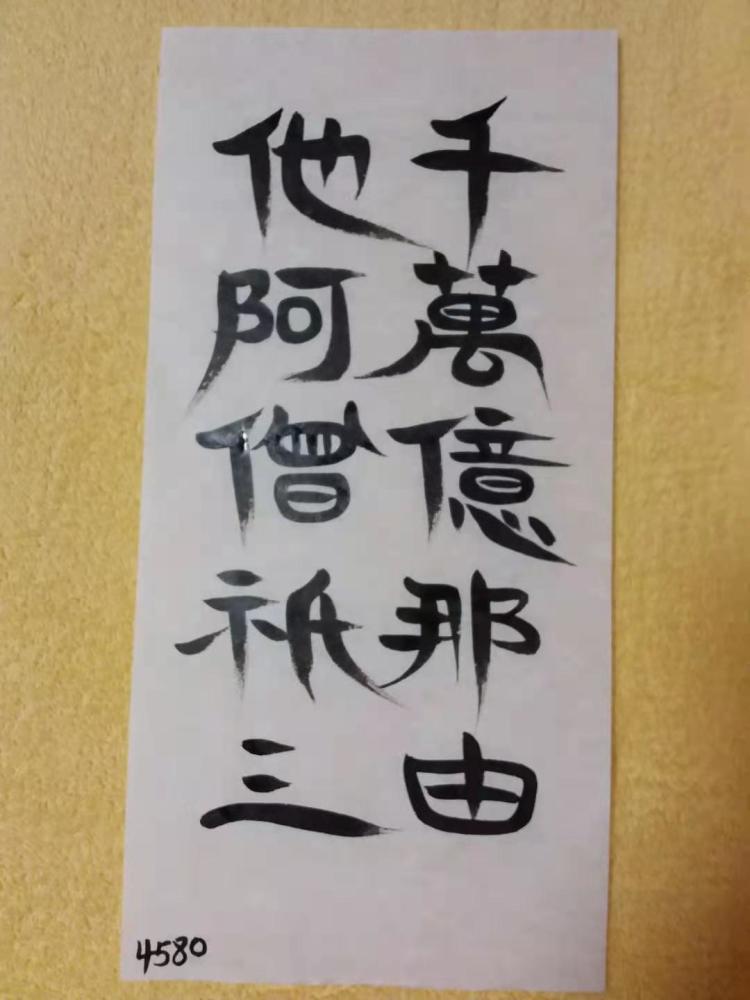 千萬億那由
他阿僧祇三
4580